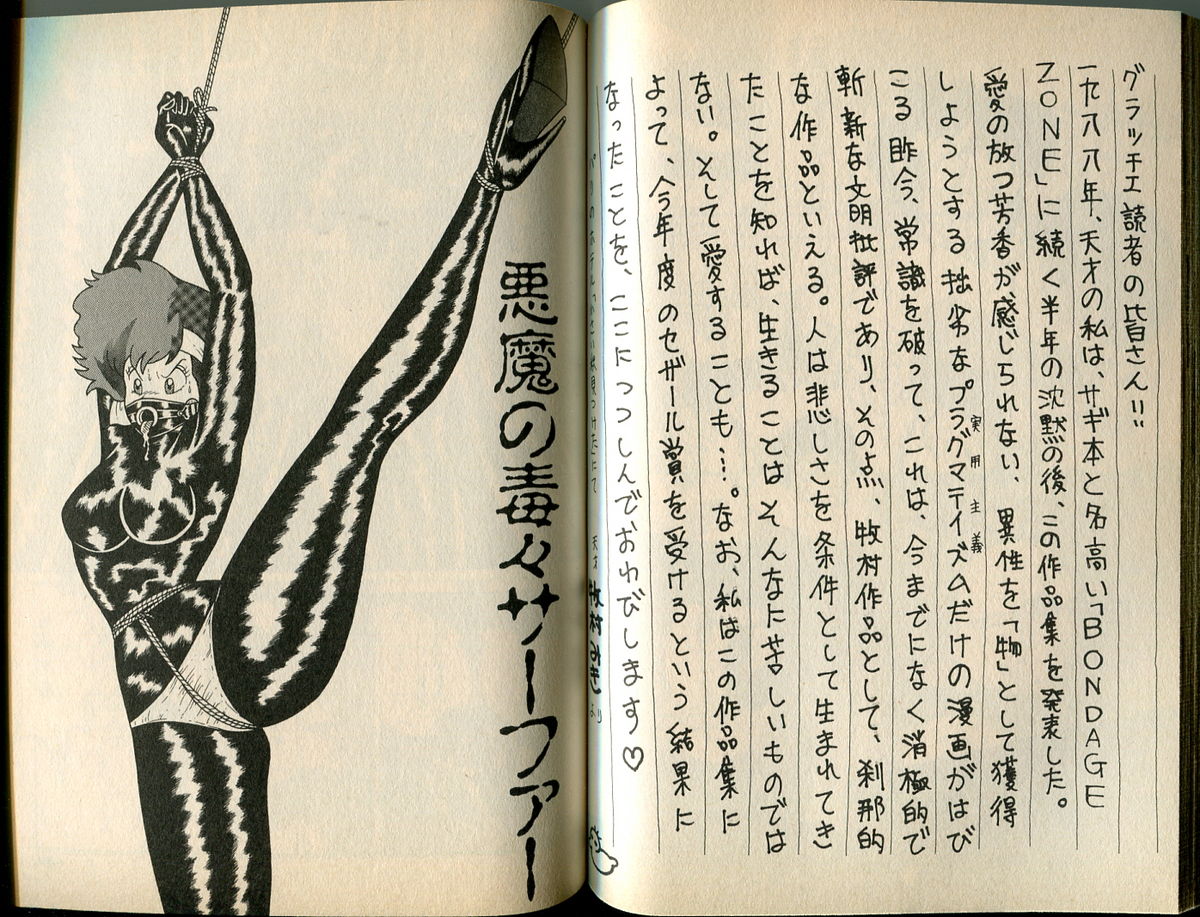 グラッチェ読者の皆さん!!
一九八八年、天才の私は、サギ本と名高い「BONDAGE
ZONE」に続く半年の沈黙の後、この作品集を発表した。
愛の放つ芳香が、感じられない、異性を「物」として獲得
しようとする拙劣なプラグマティズムだけの漫画がはび
実用主義
こる昨今、常識を破って、これは、今までになく消極的で
斬新な文明批評であり、その点、牧村作品として、刹那的
な作品といえる。人は悲しさを条件として生まれてき
たことを知れば、生きることはそんなに苦しいものでは
ない。そして愛することも…。なお、私はこの作品集に
よって、今年度のセザール賞を受けるという結果に
なったことを、ここにつつしんでおわびします♡
天才 牧村みき より
悪魔の毒々サーファー